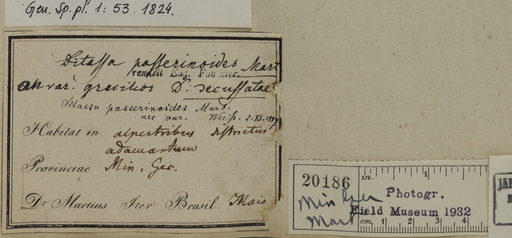 Gen. Sp. pl. 1: 53. 1824.
Ditassa passerinoides Mart
vendit Eug. Fournier.
an var. gracilior D. decussatae
Ditassa passerinoides Mart.
nec var.
Habitat in alpestribus districtus
adamantum
Provinciae Min. Ger.
Dr Martius Iter Brasil. Maio
20186
Min Ger
Mart
in.
Photogr.
Field Museum 1932
cm. 1 2 3 4
JAR